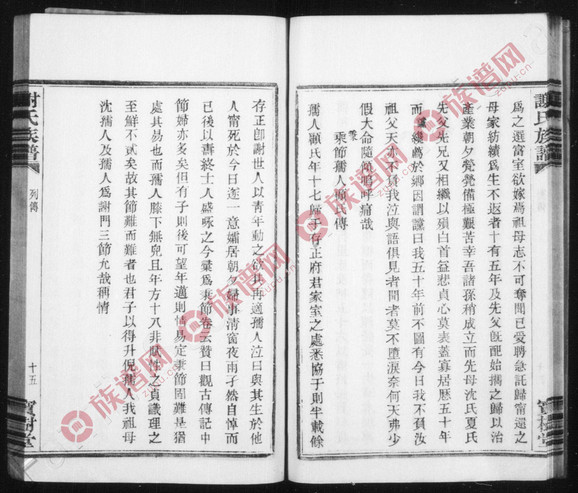 為之選富室欲嫁焉祖母志不可奪聞已受聘急託歸甯還之
母家紡績為生不返者十有五年及先父既配始攜之歸以治
產業朝夕煢煢備極艱苦幸吾諸孫稍成立而先母沈氏夏氏
先父先兄又相繼以殞白首益悲貞心莫表蓋寡居歷五十年
而纔歸於鄉因謂讓曰我五十年前不圖有今日我不負汝
祖父天乎負我泣與語俱見者聞者莫不墮淚奈何天弗少
假大命隨傾嗚呼痛哉
秉節孺人顧氏傳
孺人顧氏年十七歸于存正府君家室之處悉協于則半載餘
存正卽謝世人以青年動之欲其再適孺人泣曰與其生於他
人甯死於今日遂一意孀居朝夕歸事清窗夜雨孑然自悼而
已後以壽終士人盛咏之今彙為秉節卷云贊曰觀古傳記中
節婦亦多矣但有子則後可望年邁則情易定秉節固難是猶
處其易也而孺人膝下無兒且年方十八非賦性之貞識理之
至鮮不貳矣故其節難而難者也君子以得升倪孺人我祖母
沈孺人及孺人為謝門三節允哉稱情
謝氏族譜
列傳
十五
寶樹堂